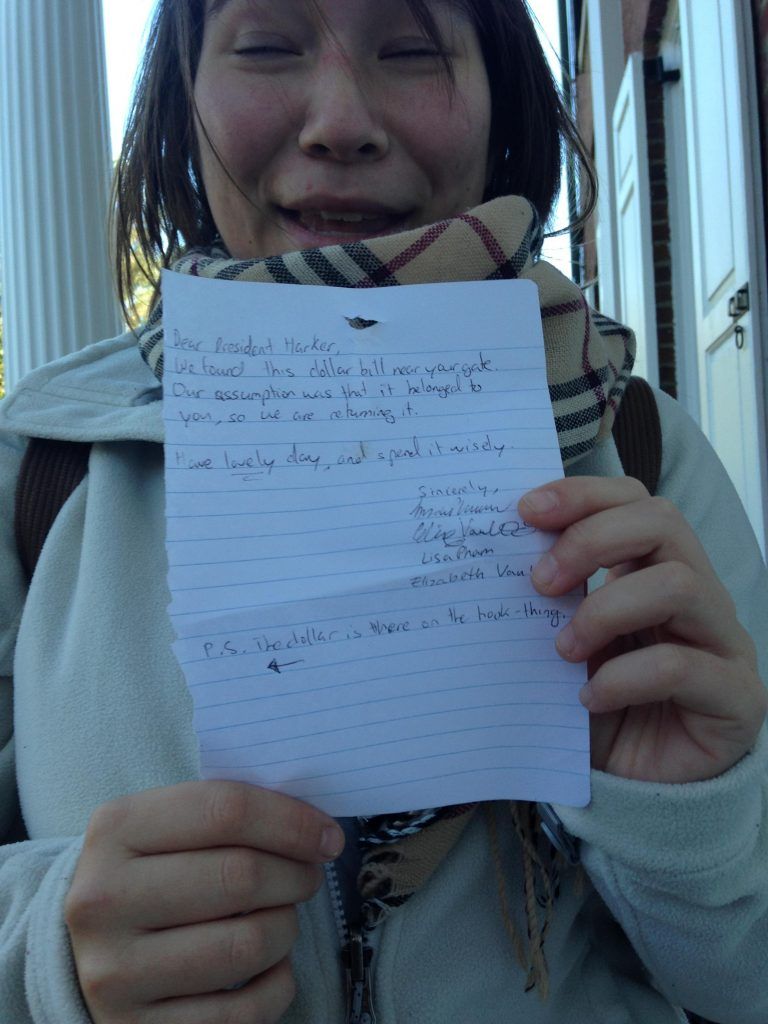 Dear President Harker,
We found this dollar bill near your gate.
Our assumption was that it belonged to
you, so we are returning it.
Have lovely day, and spend it wisely.
Sincerely,
Lisa Pham
Elizabeth
P.S. The dollar is there on the hook-thing.